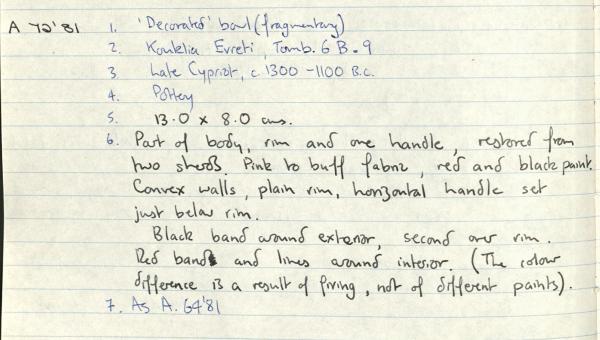 A 72'81 1. 'Decorated' bowl (fragmentary)
2. Kouklia Evreti, Tomb. 6 B. 9
3 Late Cypriot, c. 1300 - 1100 B.C.
4. Pottery
5. 13.0 x 8.0 cms.
6. Part of body, rim and one handle, restored from
two sherds. Pink to buff fabric, red and black paint.
Convex walls, plain rim, horizontal handle set
just below rim.
Black band around exterior, second over rim.
Red band and lines around interior. (The colour
difference is a result of firing, not of different paints).
7. As A. 64'81